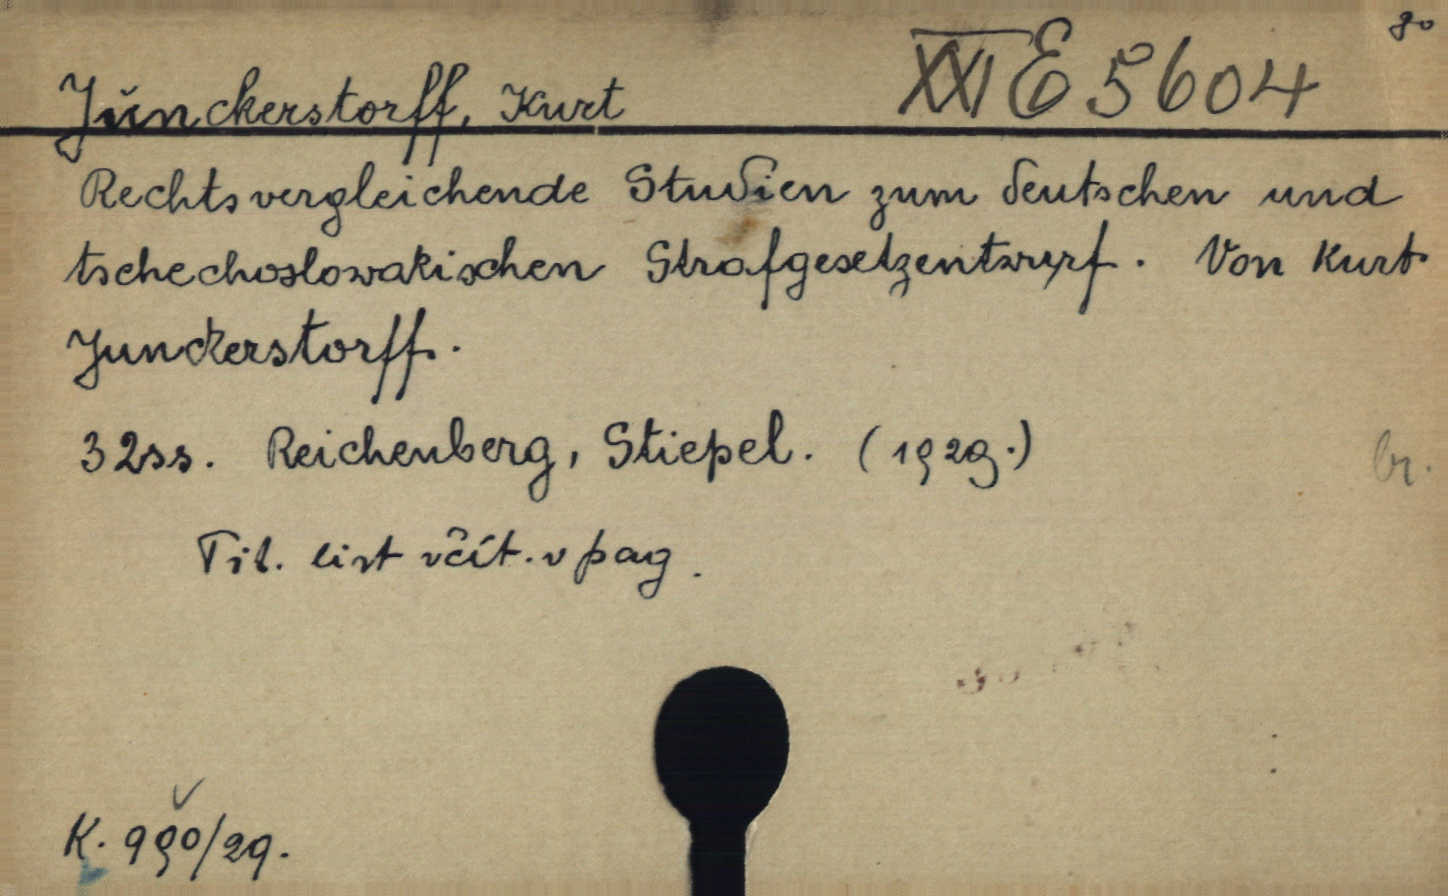 8°
XXI E 5604
Junckerstorff, Kurt
Rechtsvergleichende Studien zum deutschen und
tschechoslowakischen Strafgesetzentwurf. Von Kurt
Junckerstorff.
32 ss. Reichenberg, Stiepel. (1929.)
br.
Tit. list včít. v pag.
K. 990/29.